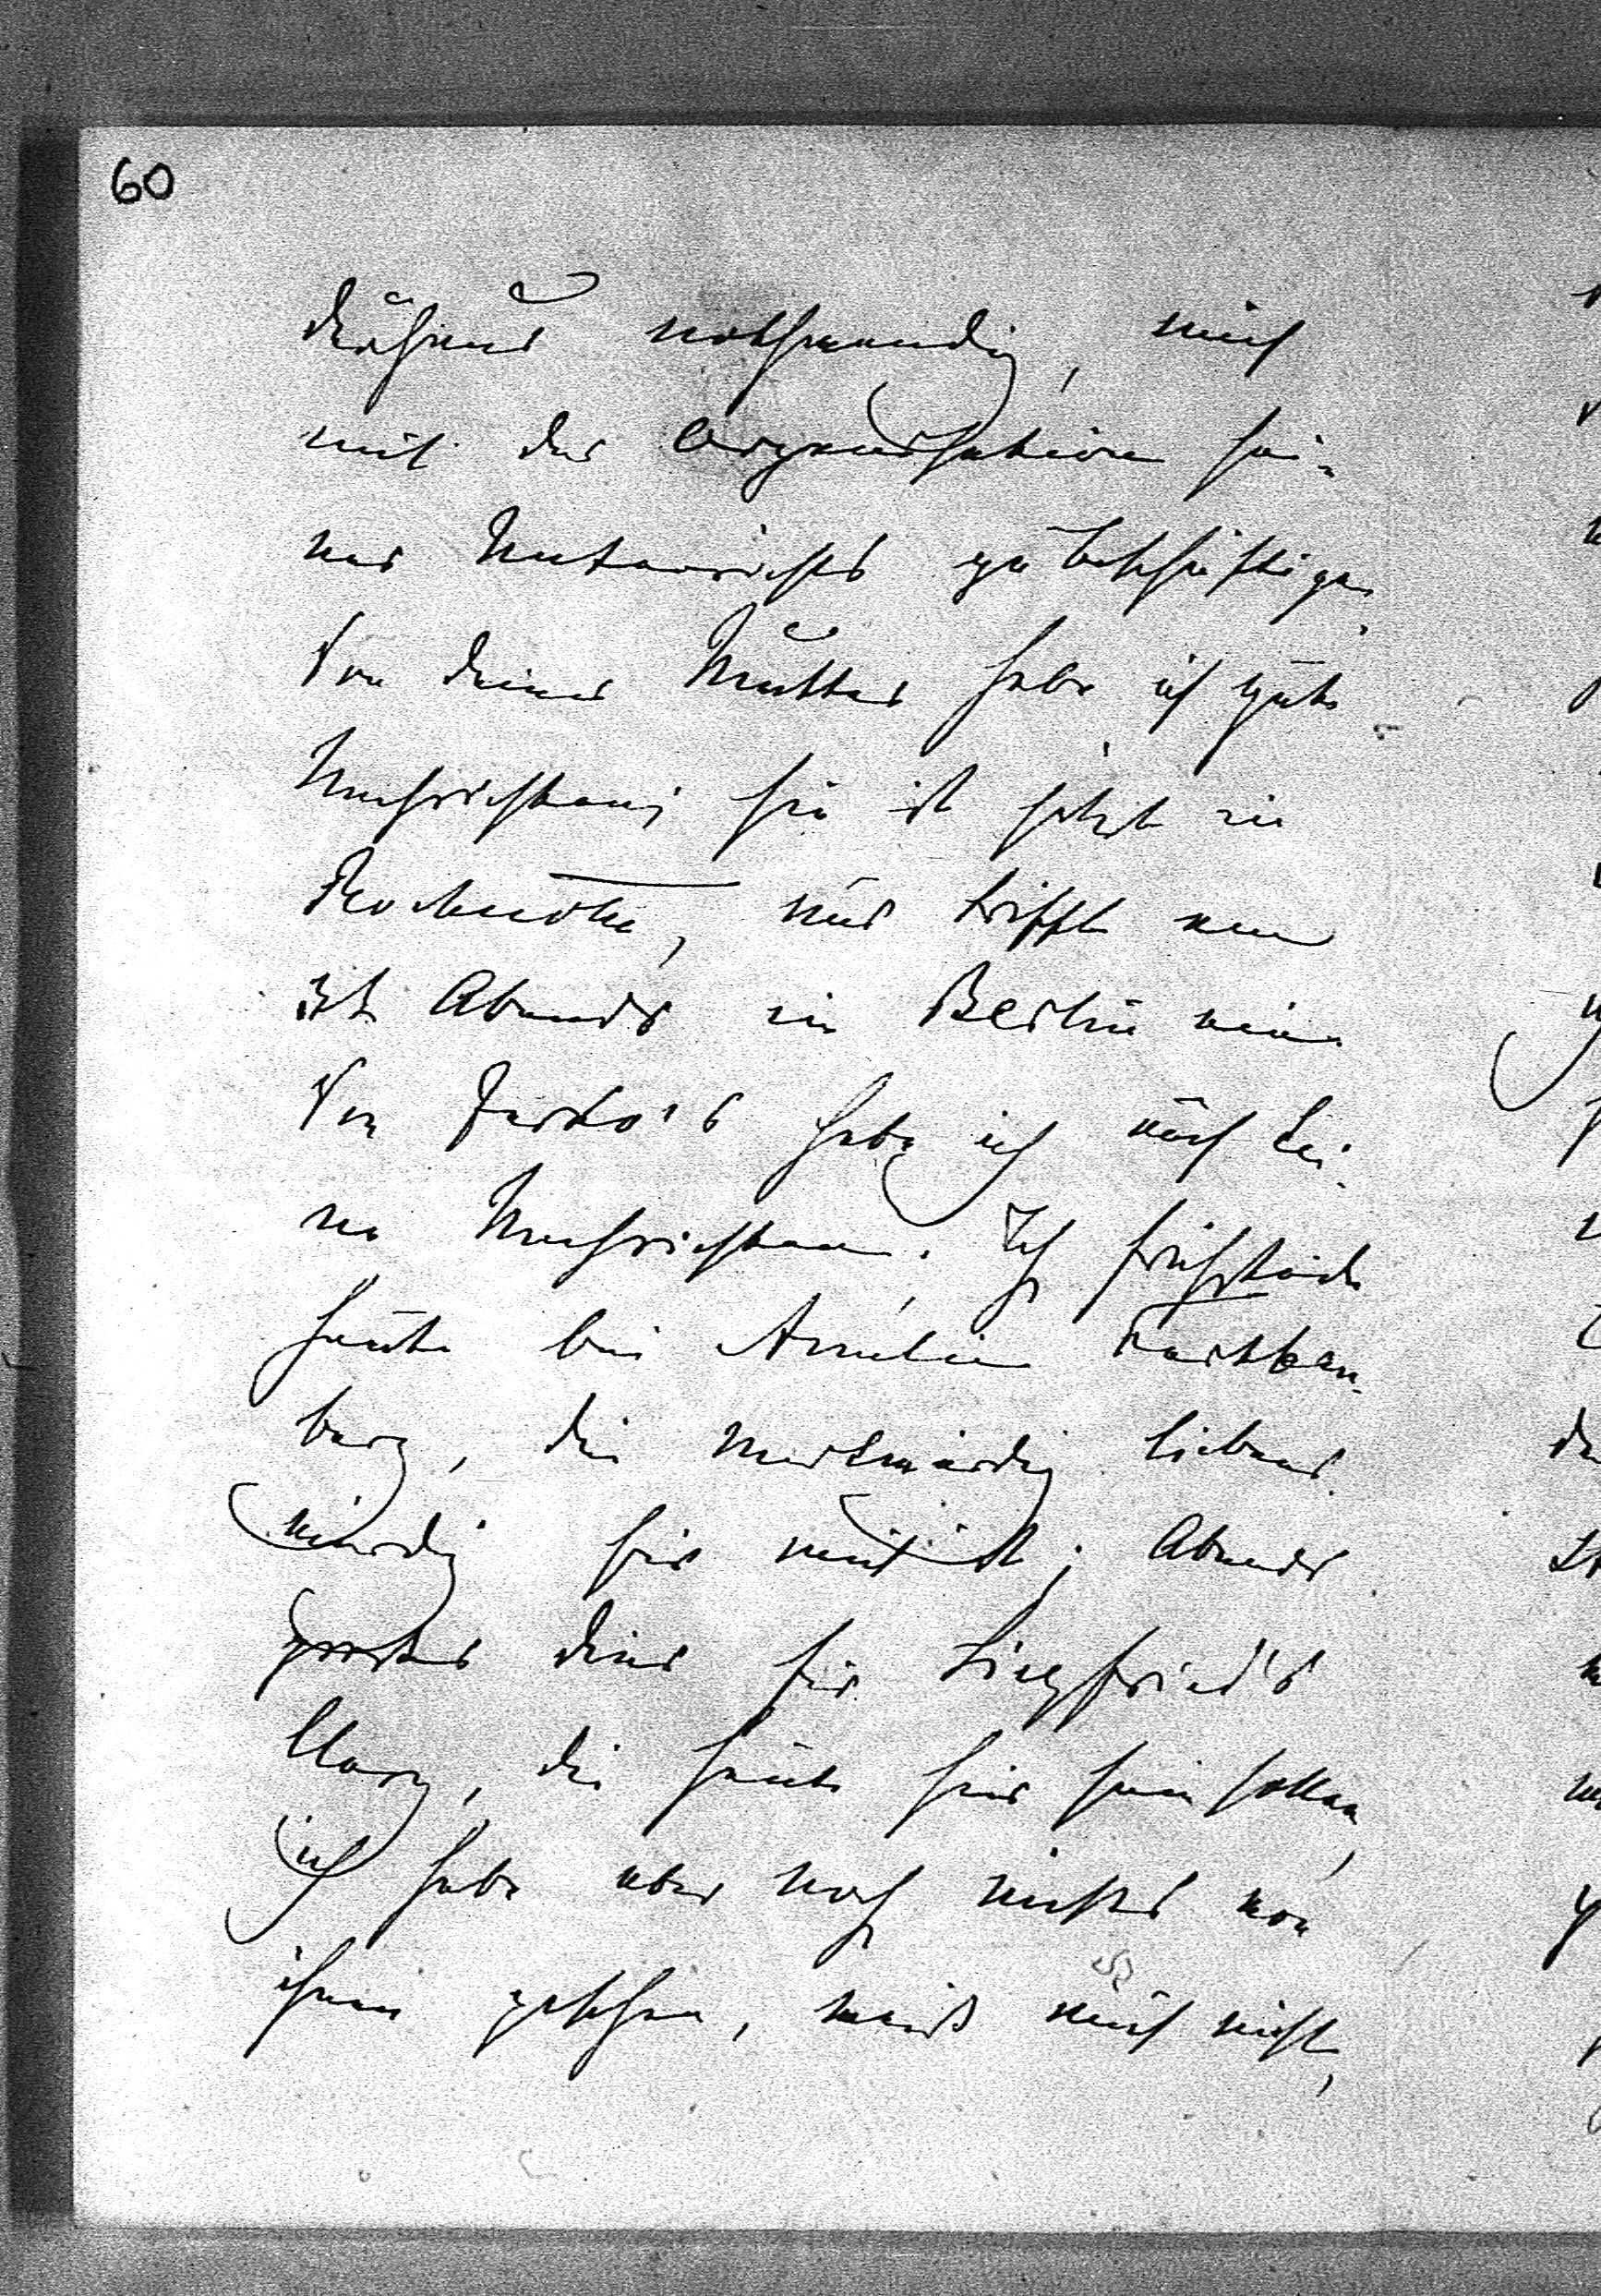 60
durchaus nothwendig, mich
mit der Organisation sei-
nes Unterrichts zu beschäftigen.
Von Deiner Mutter habe ich gute
Nachrichten; sie ist jetzt in
und trifft am
Abends in Berlin ein.
Von habe ich noch kei-
ne Nachrichten. Ich frühstücke
heute bei Amélie
berg, die merkwürdig liebens-
würdig für mich ist; Abends
Diner für Siegfried's
Clary, die heute hier sein sollen,
ich habe aber noch nichts von
ihnen gesehen, weiß auch nicht,